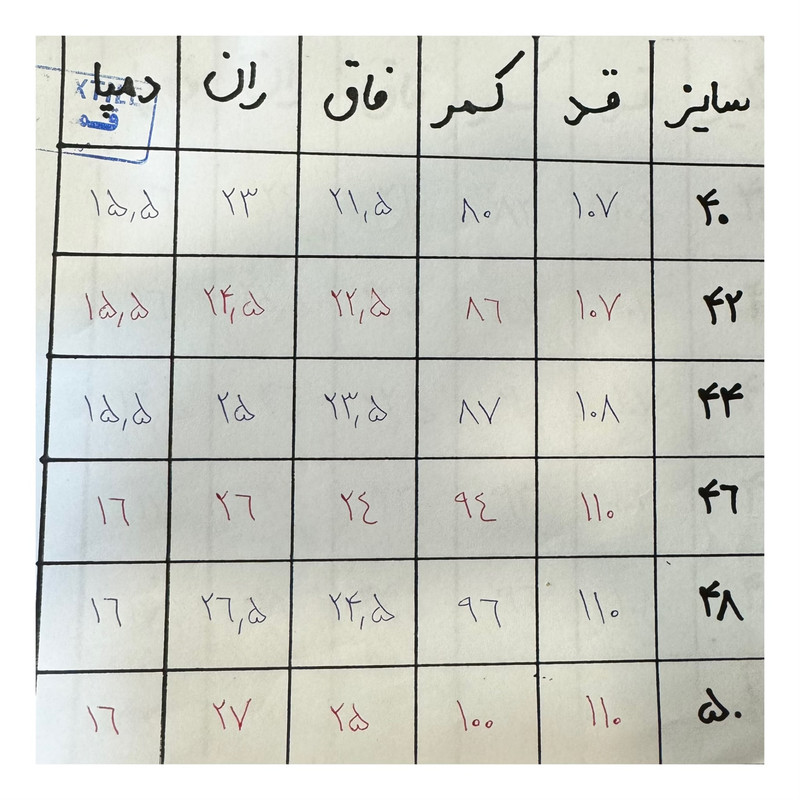 سایز قد کمر فاق ران دمپا
۴۰ ۱۰۷ ۸۰ ۲۱,۵ ۲۳ ۱۵,۵
۴۲ ۱۰۷ ۸۶ ۲۲,۵ ۲۴,۵ ۱۵,۵
۴۴ ۱۰۸ ۸۷ ۲۳,۵ ۲۵ ۱۵,۵
۴۶ ۱۱۰ ۹۴ ۲۴ ۲۶ ۱۶
۴۸ ۱۱۰ ۹۶ ۲۴,۵ ۲۶,۵ ۱۶
۵۰ ۱۱۰ ۱۰۰ ۲۵ ۲۷ ۱۶